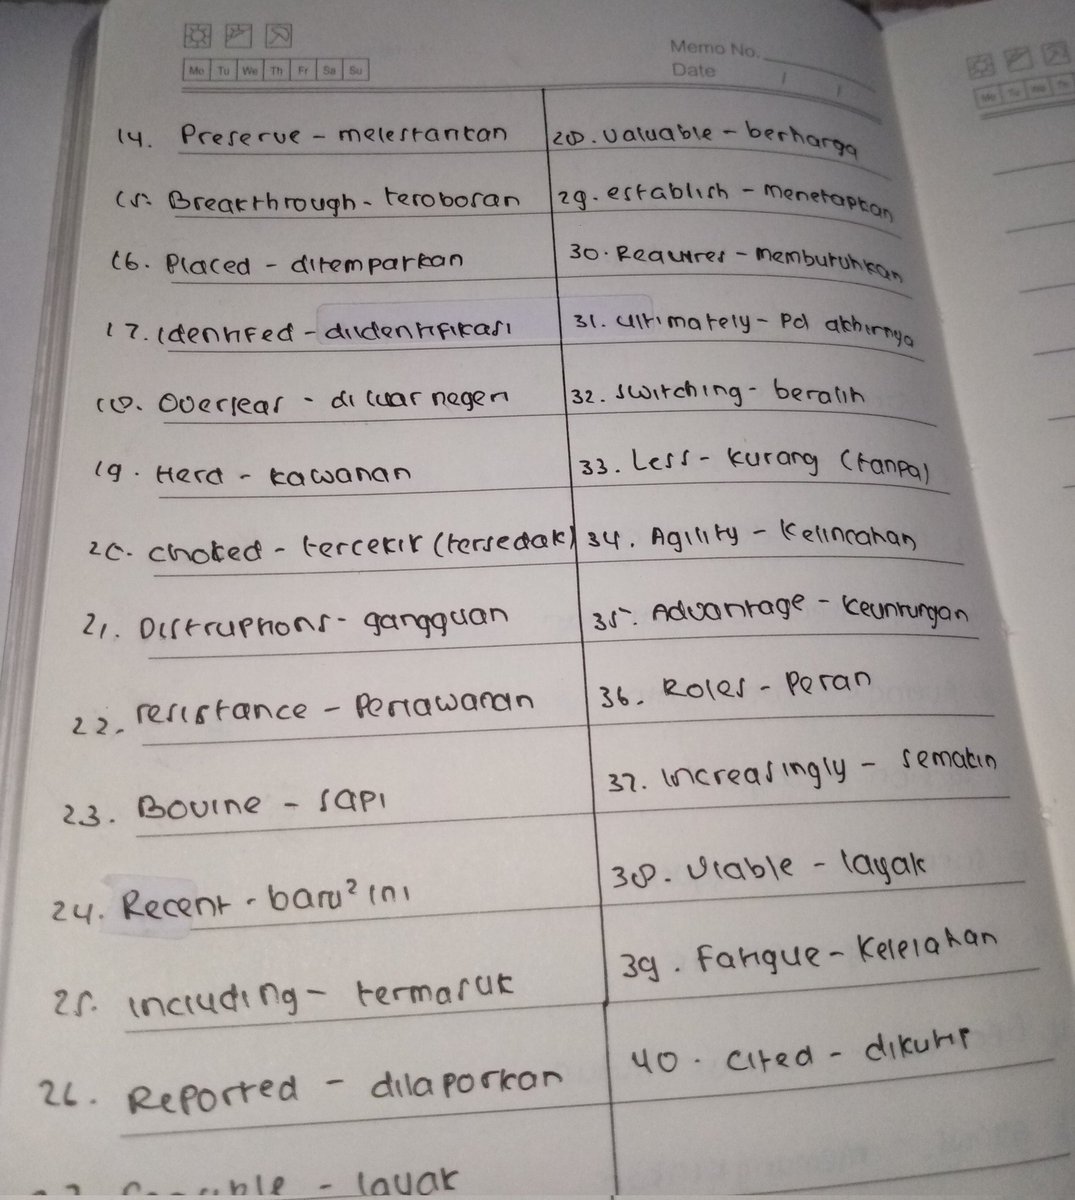 Mo Tu We Th Fr Sa Su
Memo No.
Date / /
14. Preserve - melestarikan
15. Breakthrough - teroboran
16. Placed - ditempatkan
17. Identifed - diidentifikasi
18. Overseas - di luar negeri
19. Herd - kawanan
20. choked - tercekik (tersedak)
21. Distruptions - gangguan
22. resistance - Perlawanan
23. Bovine - sapi
24. Recent - baru² ini
25. including - termasuk
26. Reported - dilaporkan
- layak
28. valuable - berharga
29. establish - Menetapkan
30. Requires - membutuhkan
31. Ultimately - Pd akhirnya
32. switching - beralih
33. Less - kurang (tanpa)
34. Agility - kelincahan
35. Advantage - keuntungan
36. Roles - Peran
37. increasingly - semakin
38. Viable - layak
39. Fatigue - kelelahan
40. cited - dikutip
Mo Tu We Th